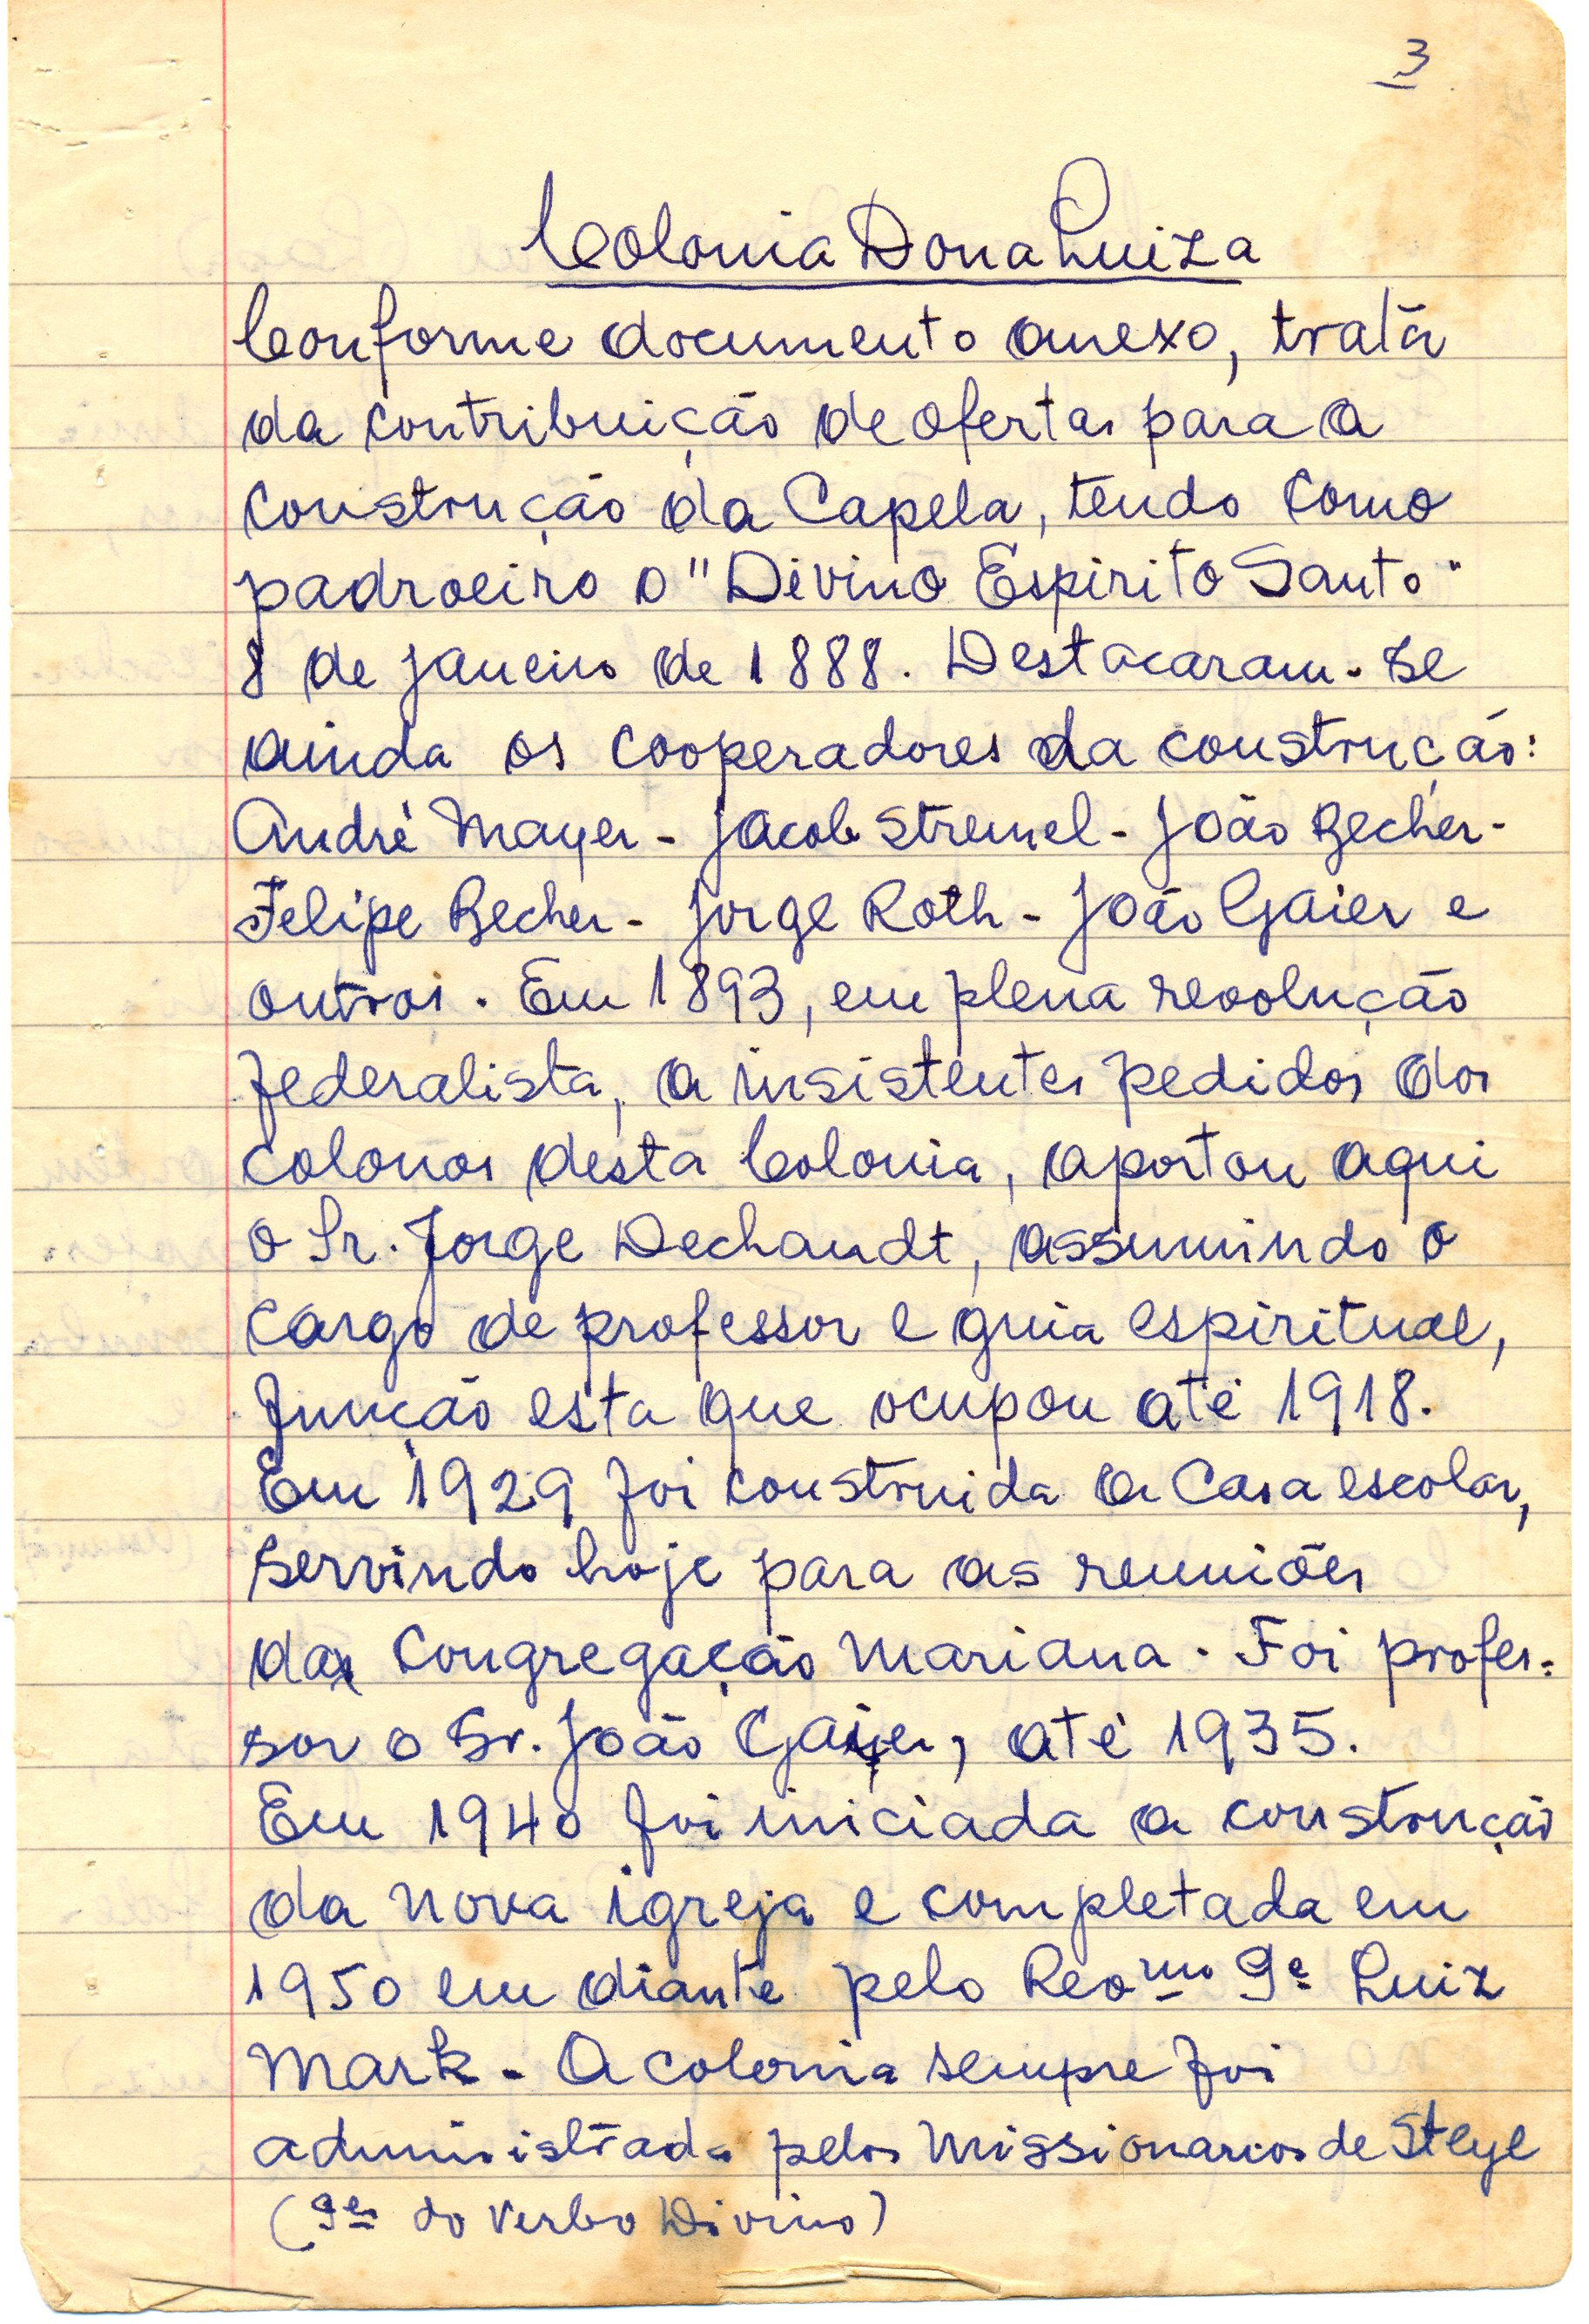 3
Colonia Dona Luiza
Conforme documento anexo, trata
da contribuição de ofertas para a
construção da Capela, tendo como
padroeiro o "Divino Espirito Santo"
8 de janeiro de 1888. Destacaram-se
ainda os cooperadores da construção:
André Mayer - Jacob Stremel - João Becher -
Felipe Becher - Jorge Roth - João Gaier e
outros. Em 1893, em plena revolução
federalista, a insistentes pedidos dos
colonos desta Colonia, aportou aqui
o Sr. Jorge Dechandt, assumindo o
cargo de professor e guia espiritual,
função esta que ocupou até 1918.
Em 1929 foi construida a Casa escolar,
servindo hoje para as reuniões
da Congregação Mariana. Foi profes-
sor o Sr. João Gaier, até 1935.
Em 1940 foi iniciada a construção
da nova igreja e completada em
1950 em diante pelo Revmo Pe Luiz
Mark - A colonia sempre foi
administrada pelos Missionarios de Steyl
(Pes do Verbo Divino)